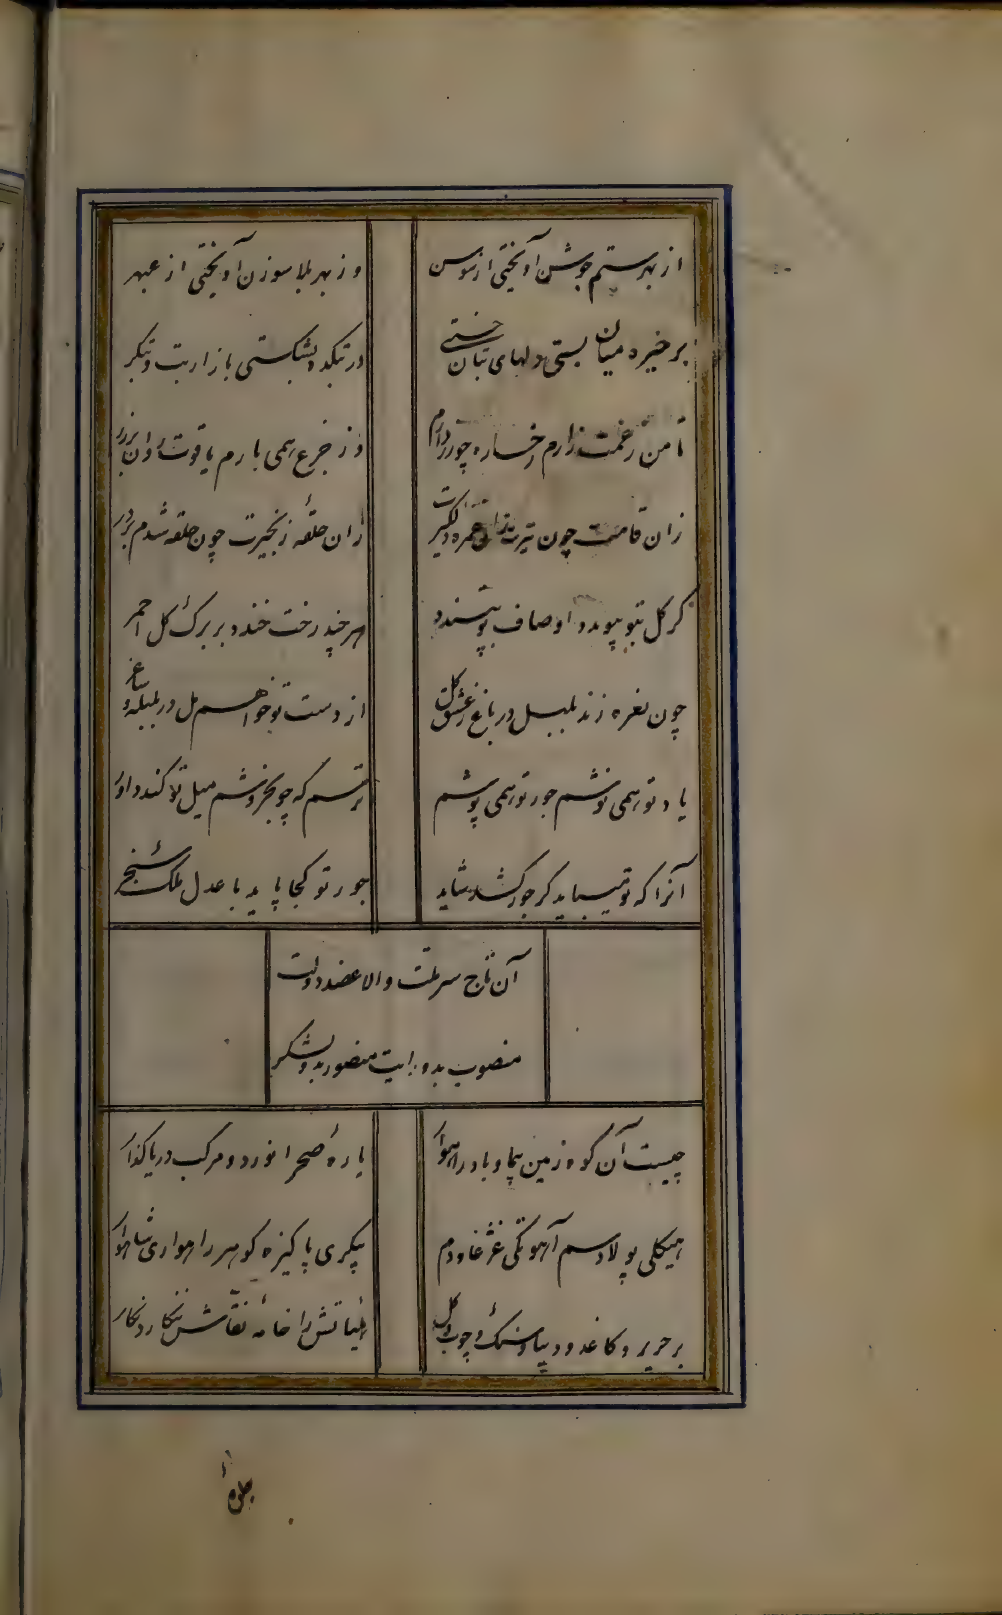 از بهر ستم جوشن آویختی از سوسن
وز بهر بلا سوزن آویختی از عبهر
بر خیره میان بستی دلهای بتان خستی
در تبکده بشکستی بازار بت و تبکر
تا من زخمت زارم رخساره چو زر دارم
وز جزع همی بارم یاقوت روان بر زر
زان قامت چون تیرت دلگیرت
زان حلقه زنجیرت چون حلقه شدم بر در
گر کل بتو پیوندد اوصاف تو بپسندد
هر چند رخت خندد بر برگ کل احمر
چون نعره زند بلبل در باغ ز عشق کل
از دست تو خواهم مل در بلبله و ساغر
یاد تو همی نوشم جور تو همی پوشم
ترسم که چو بخروشم میل تو کند داور
آنرا که تو میباید گر جور کشد شاید
جور تو کجا پاید با عدل ملک سنجر
آن تاج سر ملت والا عضد دولت
منصوب بدو رایت منصور بدو لشکر
چیست آن کوه زمین پیما و باد راهوار
بارهٔ صحرا نورد و مرکب دریا کذار
هیکلی پولاد سم آهو تکی غژغاو دم
پیکری پاکیزه کوهر راهواری شاهوار
بر حریر و کاغذ و دیبا و سنگ و چوب و کل
هیأتش را خامهٔ نقاش ننگارد نگار
جلوهٔ